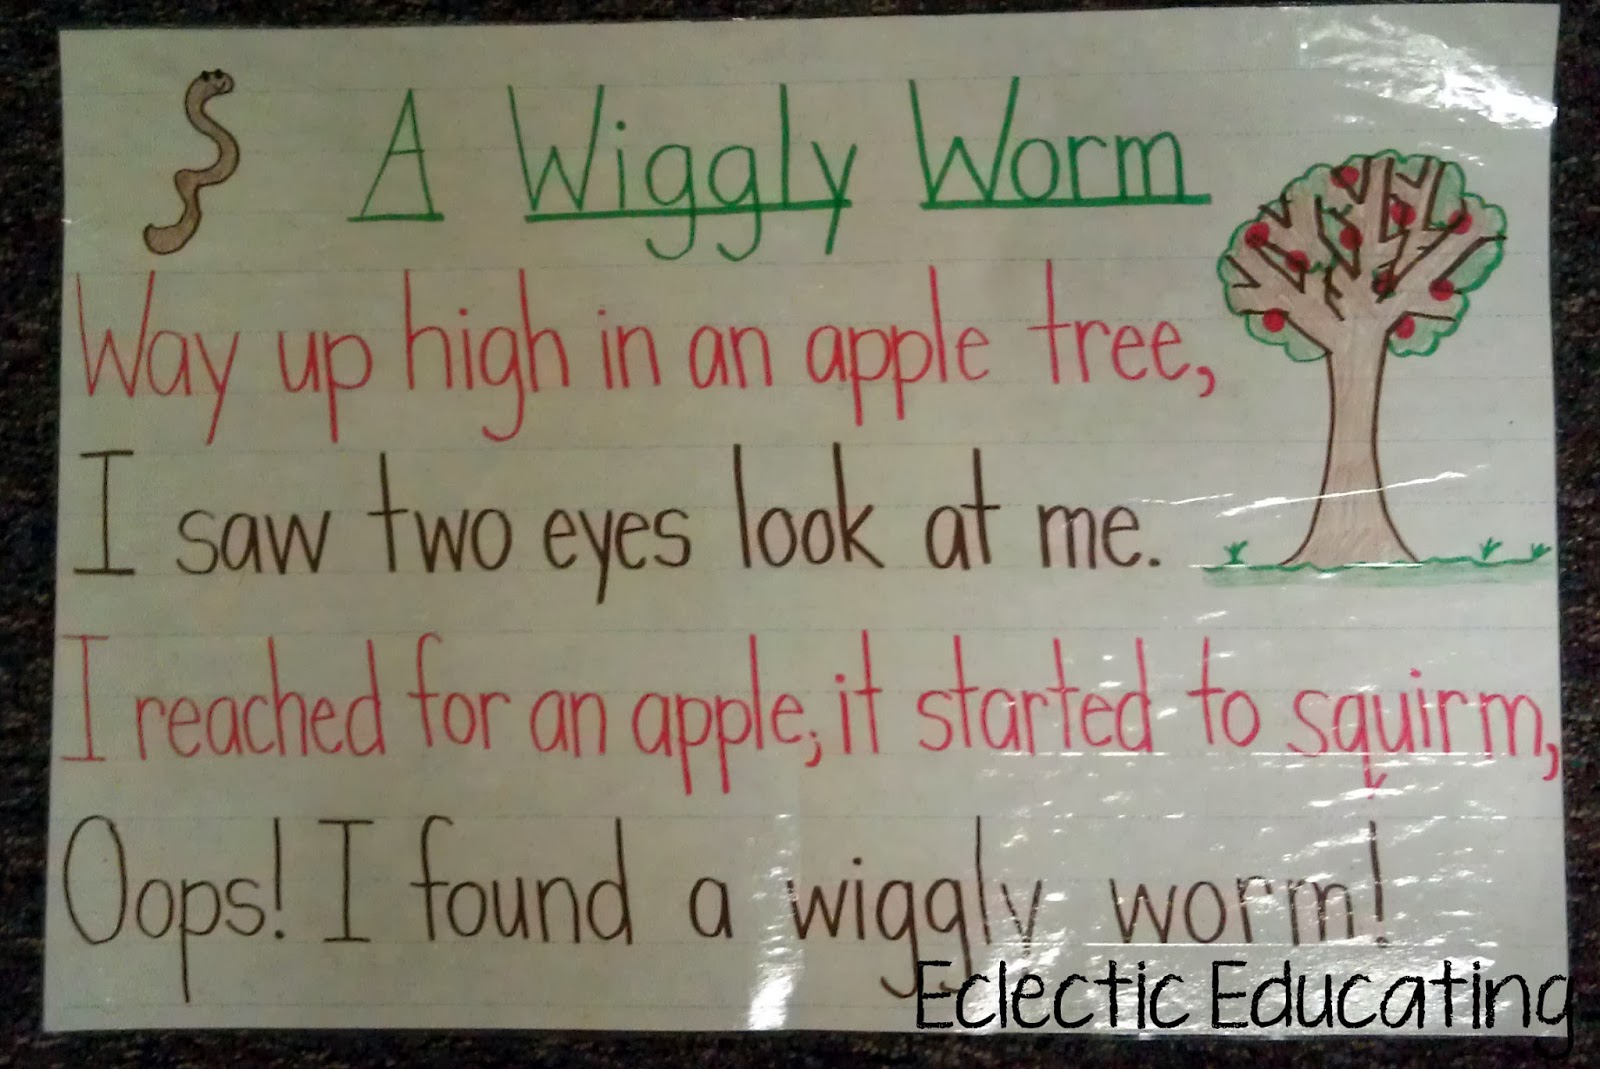 A Wiggly Worm
Way up high in an apple tree,
I saw two eyes look at me.
I reached for an apple, it started to squirm,
Oops! I found a wiggly worm!
Eclectic Educating